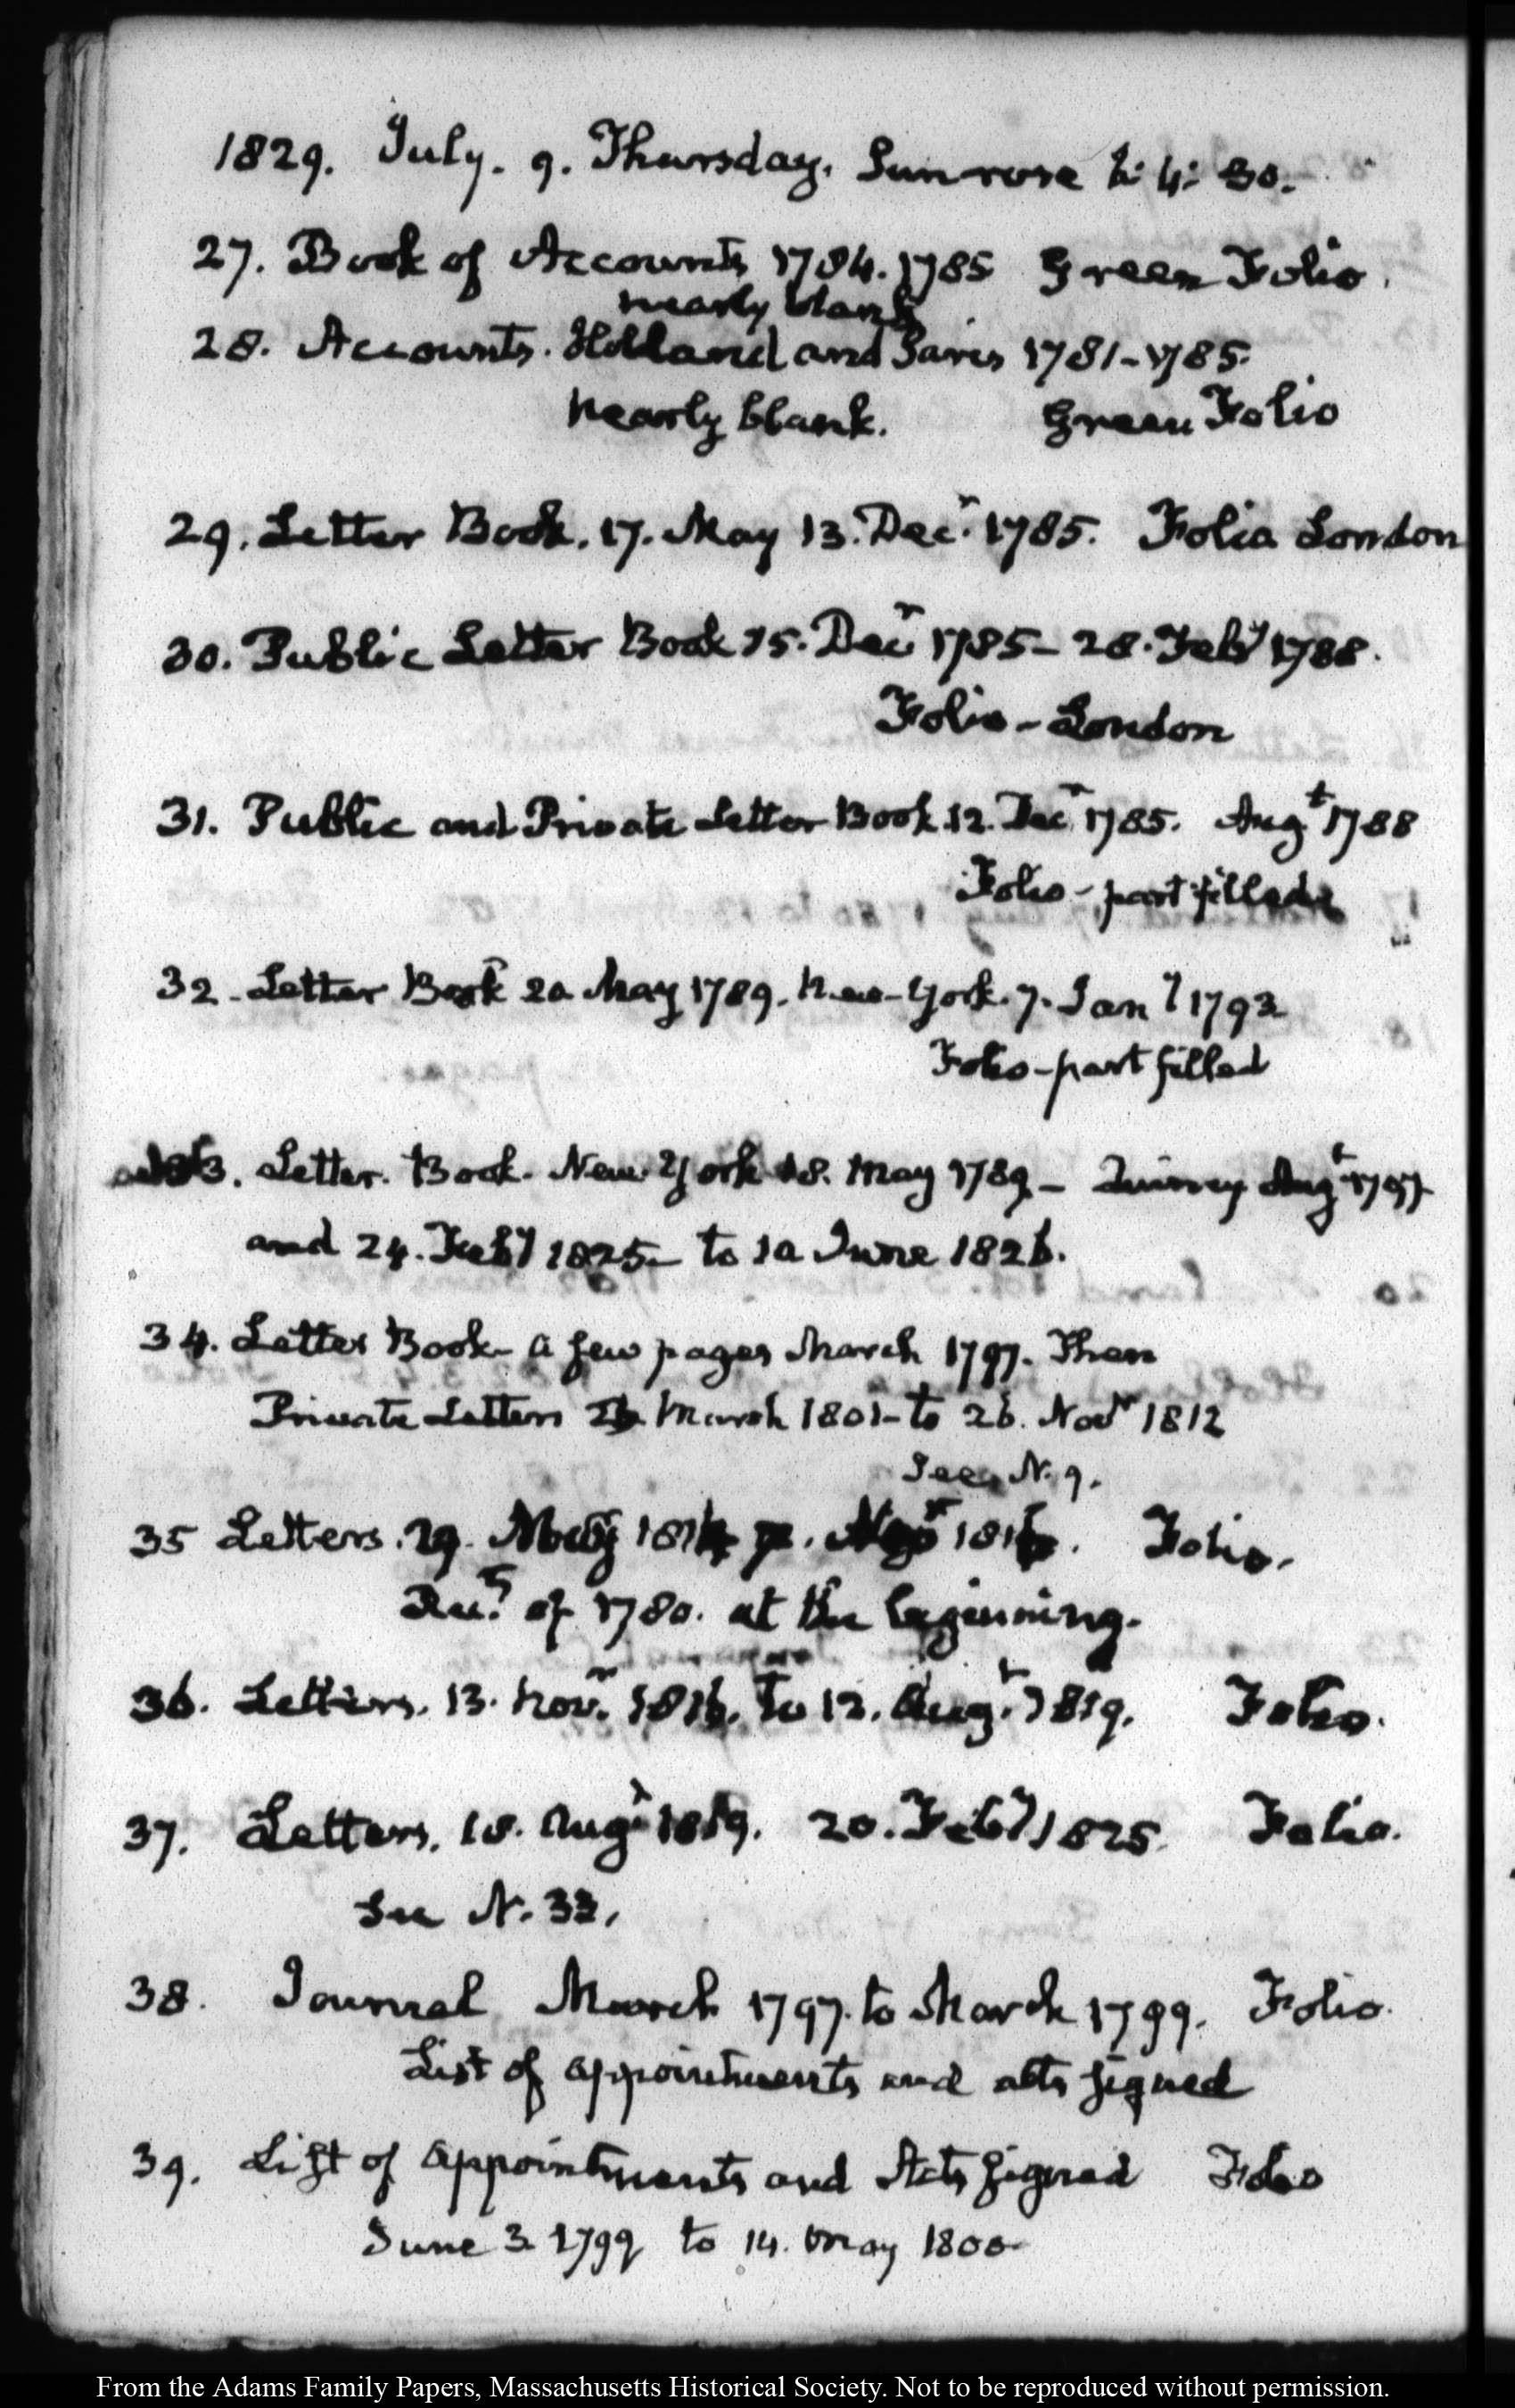 1829. July. 9. Thursday. Sun rose h: 4: 30.
27. Book of Accounts 1784. 1785 Green Folio.
nearly blank
28. Accounts. Holland and Paris 1781-1785.
nearly blank. Green Folio
29. Letter Book. 17. May 13. Decr. 1785. Folio London
30. Public Letter Book 15. Decr 1785- 28. Feby 1788.
Folio - London
31. Public and Private Letter Book 12. Decr 1785. Augt 1788
Folio - part filled
32. Letter Book 20 May 1789. New-York. 7. Jany 1793
Folio - part filled
33. Letter. Book. New York 18. May 1789 - Quincy Augt 1797
and 24. Feby 1825- to 10 June 1826.
34. Letter Book- a few pages March 1797. Then
Private Letters March 1801- to 26. Novr 1812
See N. 9.
35 Letters. 29. Folio.
of 1780. at the beginning.
36. Letters. 13. Novr. 1816. to 12. Augt. 1819. Folio.
37. Letters. 18. Augt 1819. 20. Feby 1825. Folio.
See N. 33.
38. Journal March 1797. to March 1799. Folio.
List of appointments and acts signed
39. List of appointments and Acts signed Folio
June 3 1799 to 14. May 1800
From the Adams Family Papers, Massachusetts Historical Society. Not to be reproduced without permission.